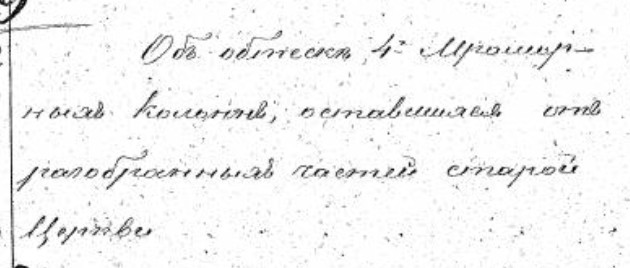 Объ обтескѣ 4хъ Мрамор-
ныхъ колоннъ, оставшихся отъ
разобранныхъ частей старой
Церкви